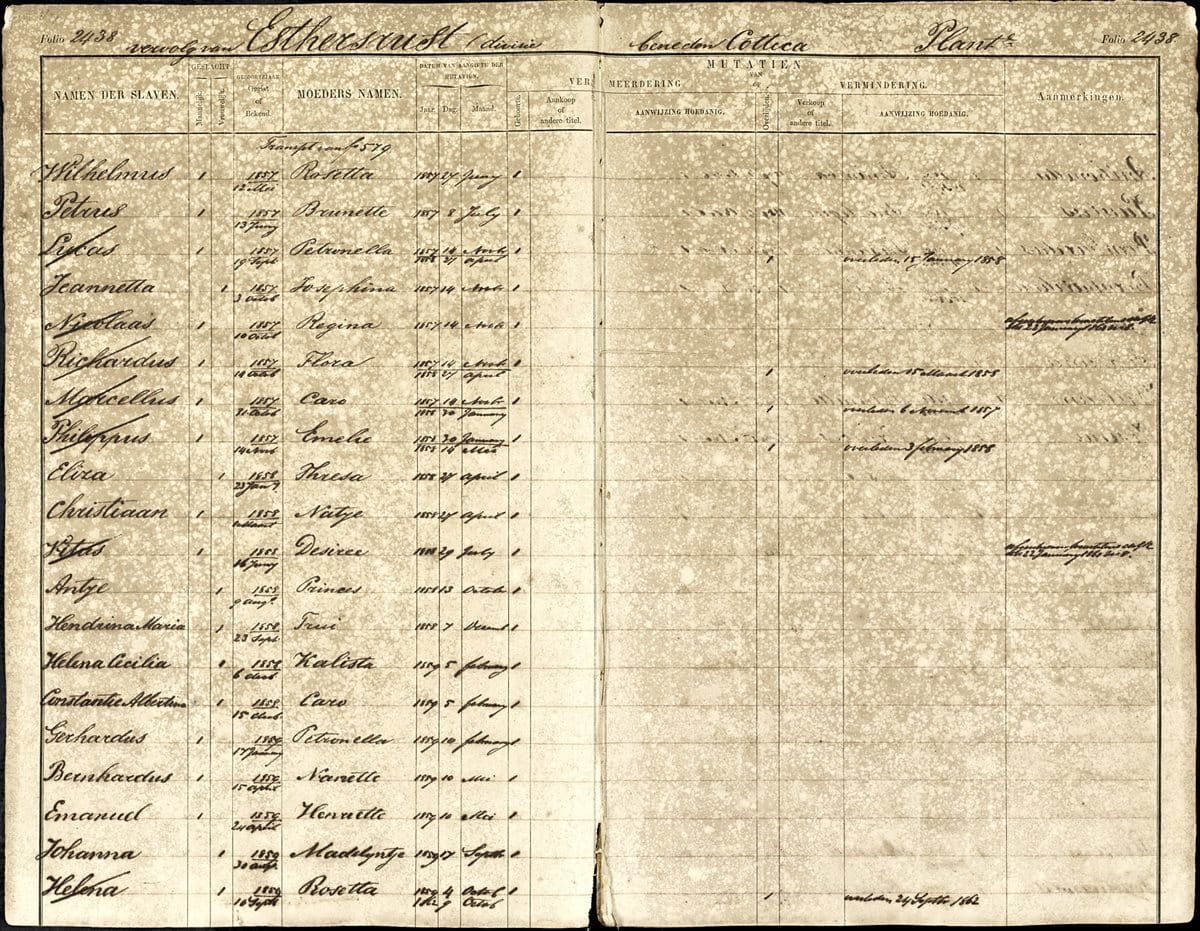 Folio 2438 vervolg van Esthersrust divisie beneden Cottica Plant.e Folio 2438
NAMEN DER SLAVEN. GESLACHT Mannelijk. Vrouwelijk. GEBOORTEJAAR Gegist of Bekend. MOEDERS NAMEN. DATUM VAN AANGIFTE DER MUTATIEN. Jaar. Dag. Maand. MUTATIEN VAN VERMEERDERING of VERMINDERING. Geboorte. Aankoop of andere titel. AANWIJZING HOEDANIG. Overlijden. Verkoop of andere titel. AANWIJZING HOEDANIG. Aanmerkingen.
Transpt van fo 579
Wilhelmus 1 1857 Rosetta 1857 27 Juny 1
12 Mei
Petrus 1 1857 Brunette 1857 8 July 1
13 Juny
Lucas 1 1857 Petronella 1857 14 Novb 1
19 Sept 1858 27 April 1 overleden 15 January 1858
Jeannetta 1 1857 Josephina 1857 14 Novb 1
3 Octob
Nicolaas 1 1857 Regina 1857 14 Novb 1
10 Octob
Richardus 1 1857 Flora 1857 14 Novb 1
14 Octob 1858 27 April 1 overleden 15 Maart 1858
Marcellus 1 1857 Caro 1857 14 Novb 1
31 Octob 1858 30 January 1 overleden 6 November 1857
Philippus 1 1857 Emelie 1858 30 January 1
14 Nov 1858 14 Mei 1 overleden 3 february 1858
Eliza 1 1858 Thresa 1858 27 April 1
23 Jan
Christiaan 1 1858 Natje 1858 27 April 1
Maart
Vitus 1 1858 Desiree 1858 29 July 1
16 Juny
Antje 1 1858 Princes 1858 13 Octob 1
9 Aug.t
Hendrina Maria 1 1858 Trui 1858 7 Decemb 1
23 Sept
Helena Cecilia 1 1858 Kalista 1859 5 february 1
6 decb
Constantie Albertina 1 1858 Caro 1859 5 february 1
15 decb
Gerhardus 1 1859 Petronella 1859 10 february 1
17 January
Bernhardus 1 1859 Nanette 1859 10 Mei 1
15 April
Emanuel 1 1859 Henriette 1859 10 Mei 1
24 April
Johanna 1 1859 Madelyntje 1859 17 Septb 1
30 Aug.
Helena 1 1859 Rosetta 1859 4 Octob 1
10 Sept 1862 9 Octob 1 overleden 24 Septbr 1862